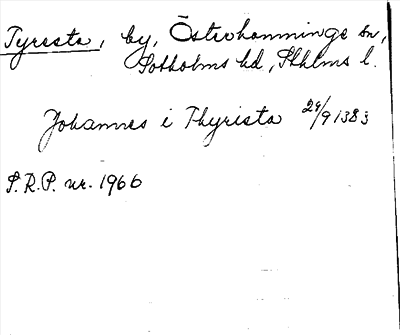 Tyresta, by, Österhanninge sn,
Sotholms hd, Sthlms l.
Johannes i Thyrista 29/9 1383
S.R.P. nr. 1966